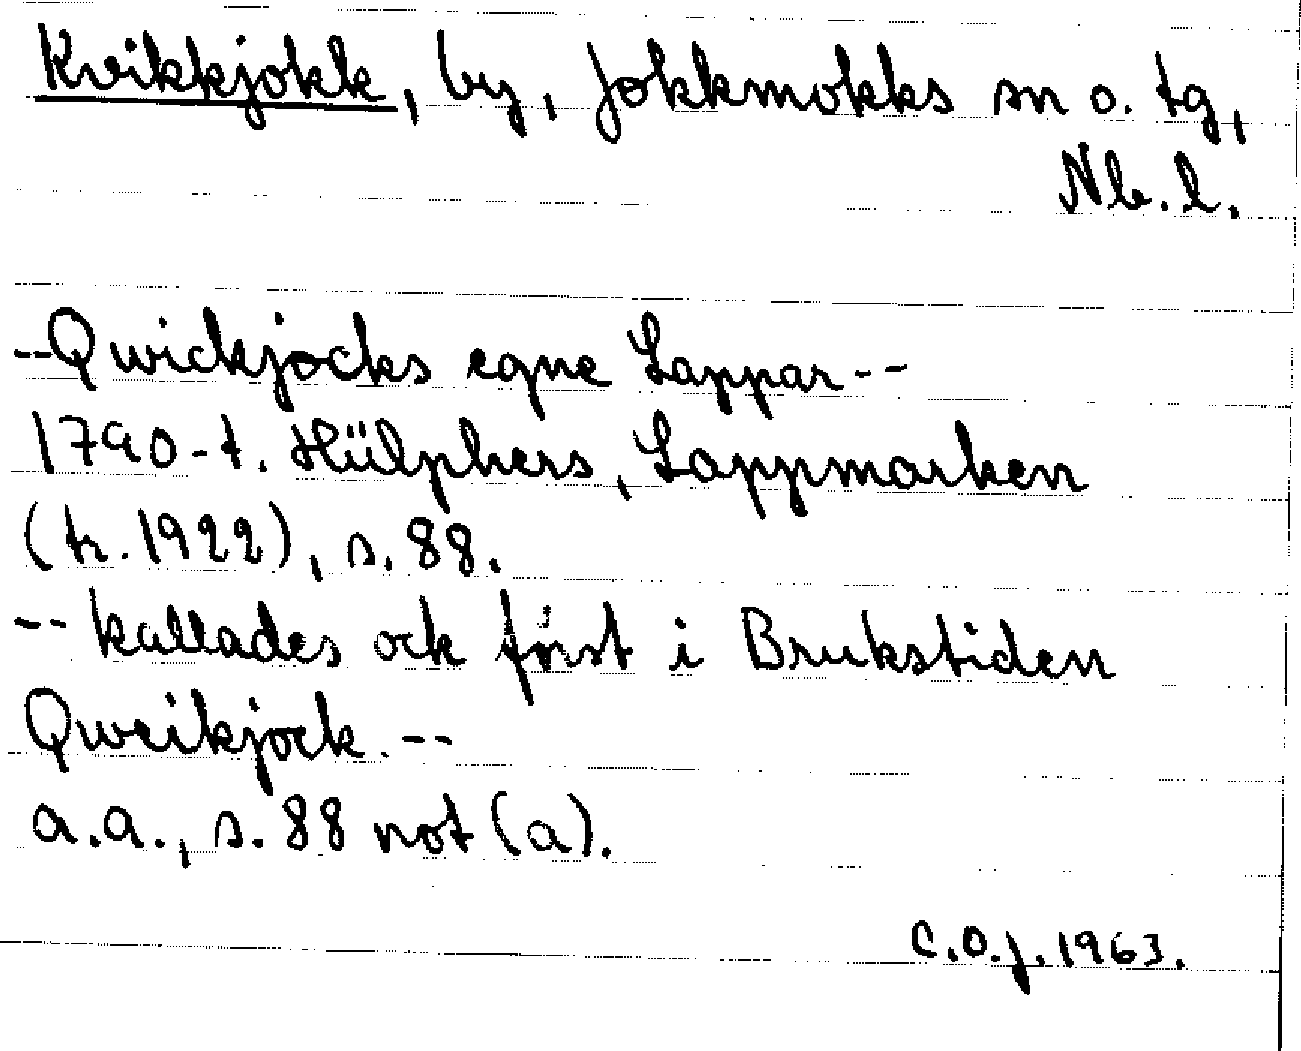 Kvikkjokk, by, Jokkmokks sn o. tg,
Nb. l.
--Qwickjocks egne Lappar--
1790-t. Hülphers, Lappmarken
(tr. 1922), s. 88.
-- kallades ock först i Brukstiden
Qweikjock. --
a.a., s. 88 not (a).
C.O.J. 1963.